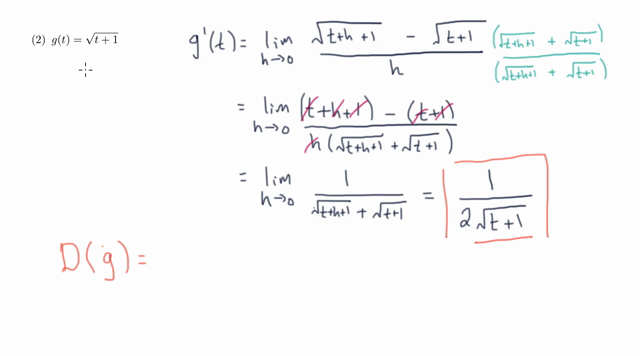 (2) g(t) = √(t + 1)
g'(t) = lim h→0 (√(t+h+1) − √(t+1)) / h (√(t+h+1) + √(t+1)) / (√(t+h+1) + √(t+1))
= lim h→0 ((t+h+1) − (t+1)) / (h(√(t+h+1) + √(t+1)))
= lim h→0 1 / (√(t+h+1) + √(t+1)) = 1 / (2√(t+1))
D(g) =